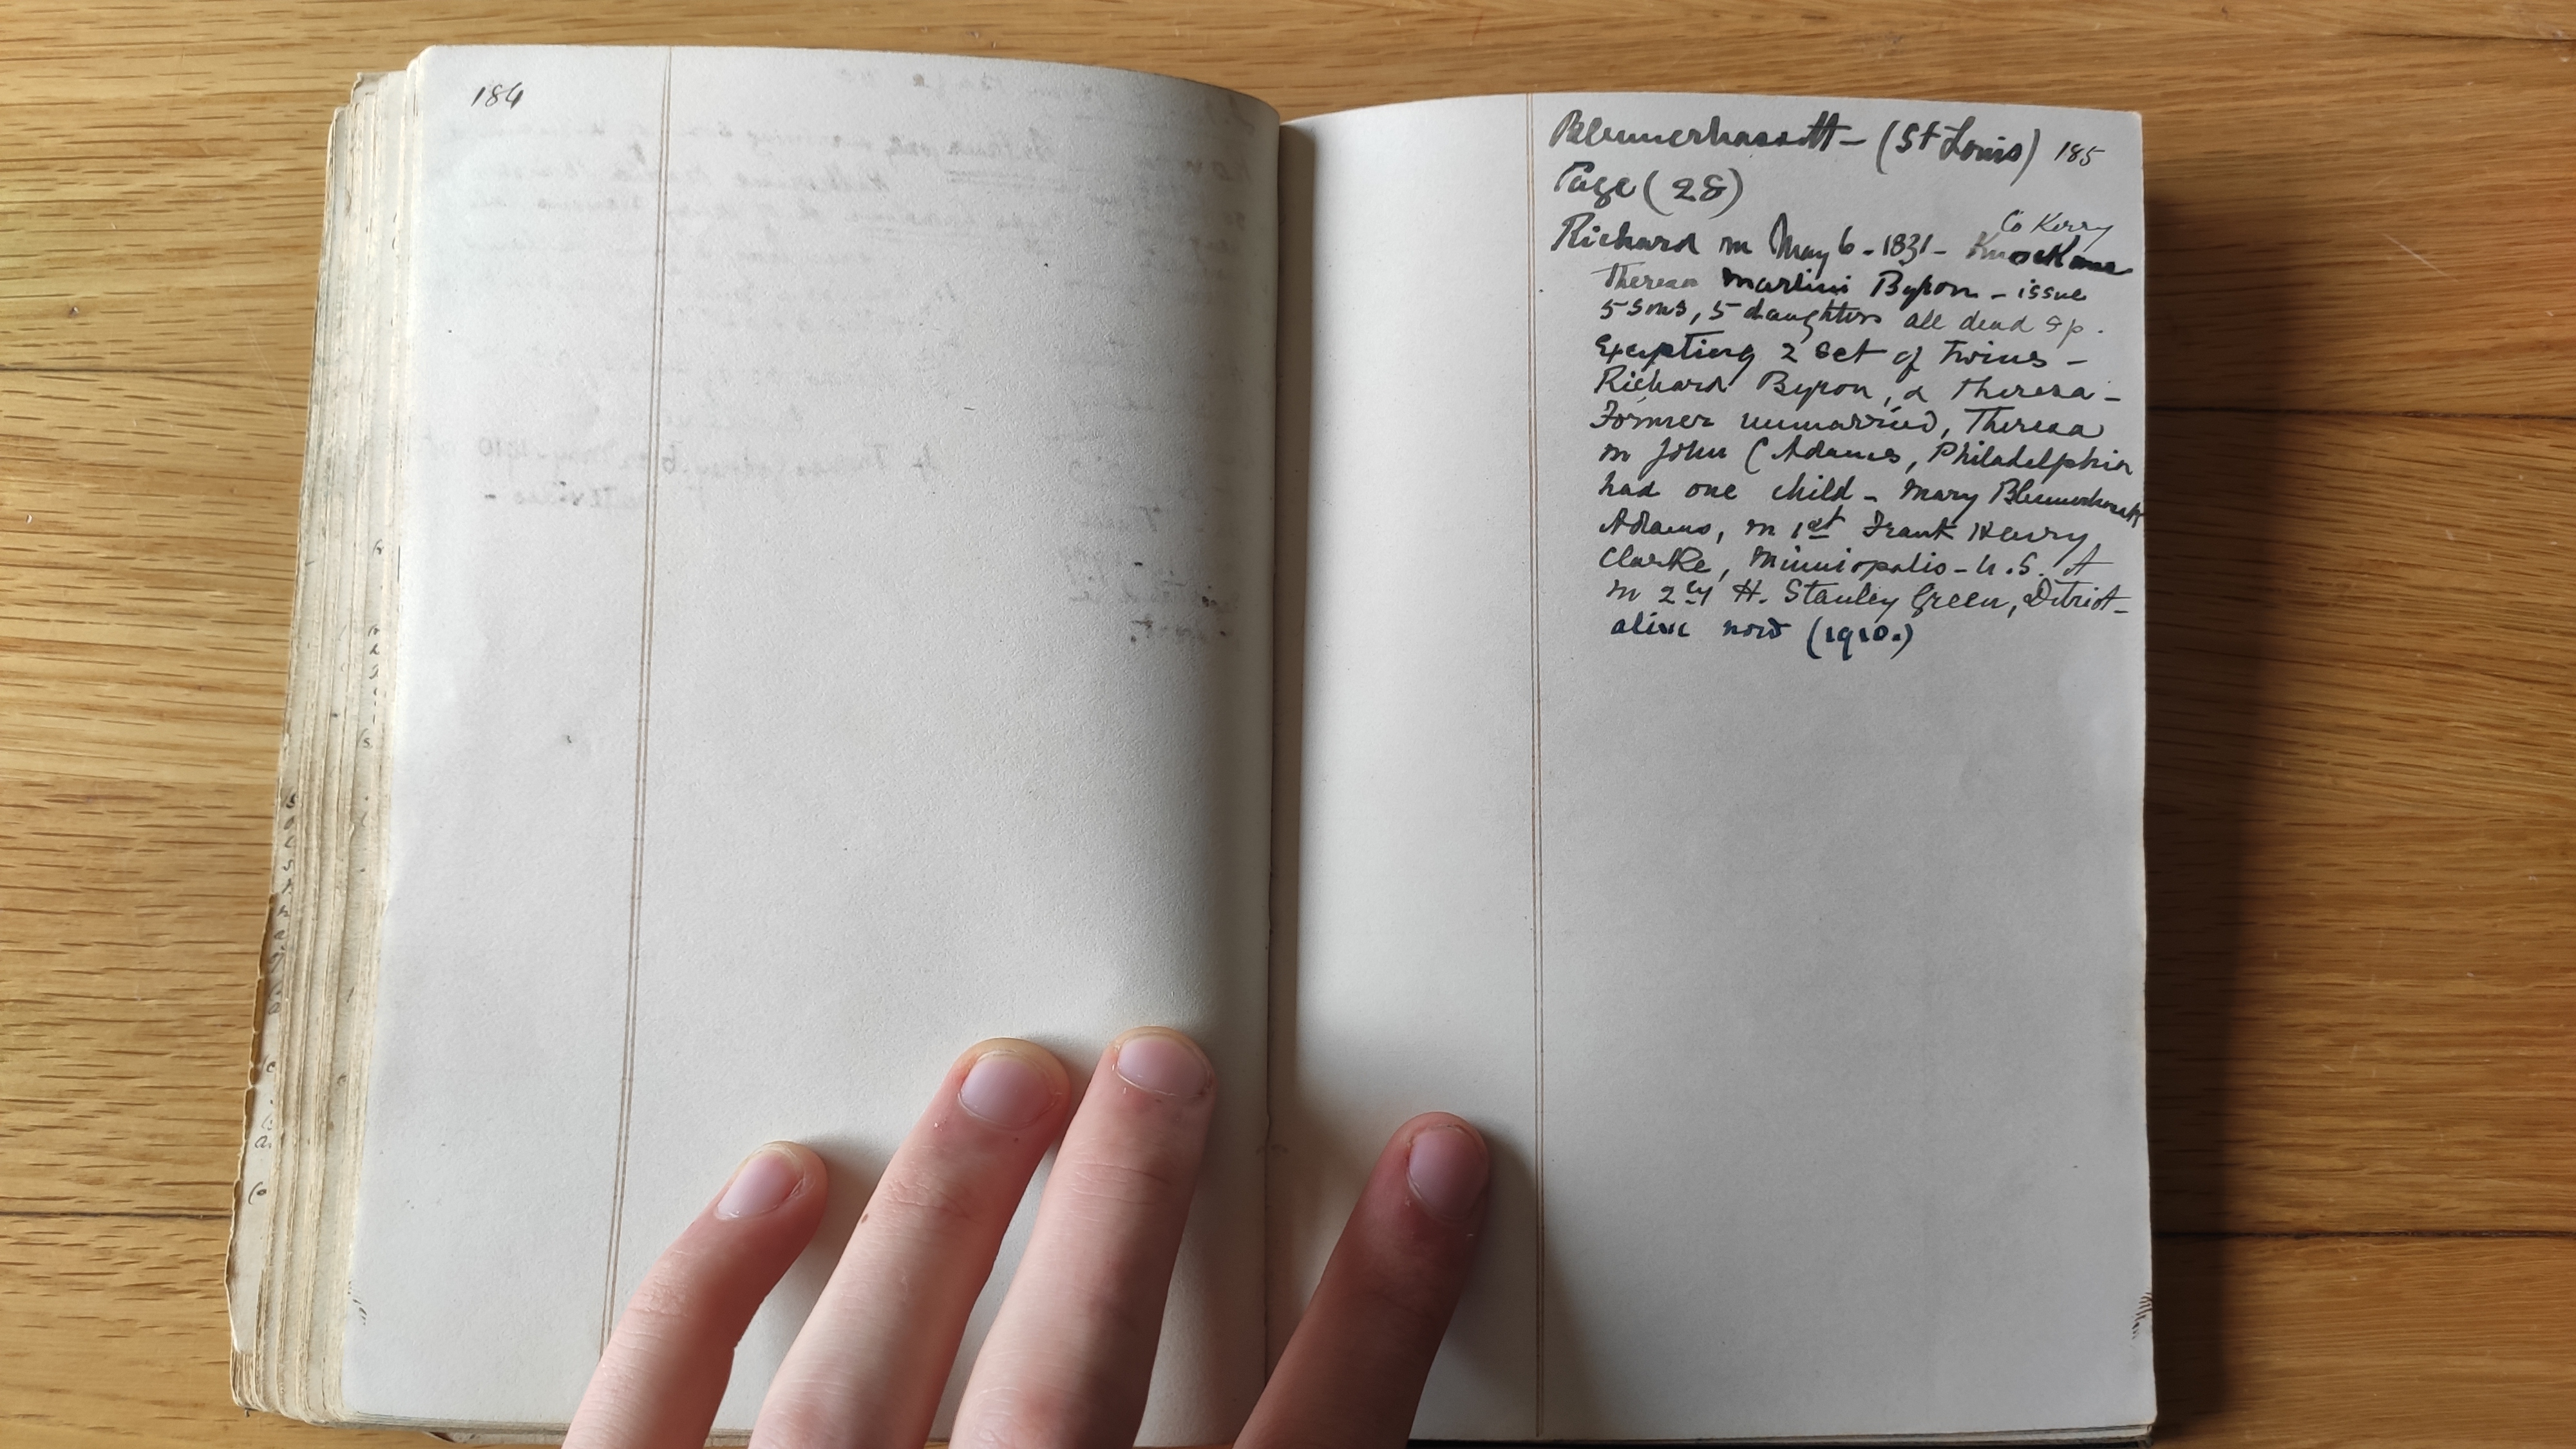 184
Blennerhassett - (St Louis) 185
Page (28)
Co Kerry
Richard m May 6 - 1831 -
Theresa Martini Byron - issue
5 sons, 5 daughters all dead sp.
Excepting 2 set of twins -
Richard Byron, & Theresa -
Former unmarried, Theresa
m John C Adams, Philadelphia
had one child - Mary Blennerhassett
Adams, m 1st Frank Henry
Clarke, Minniopolis - U.S. A
m 2ly H. Stanley Green, Ditriot -
alive now (1910.)